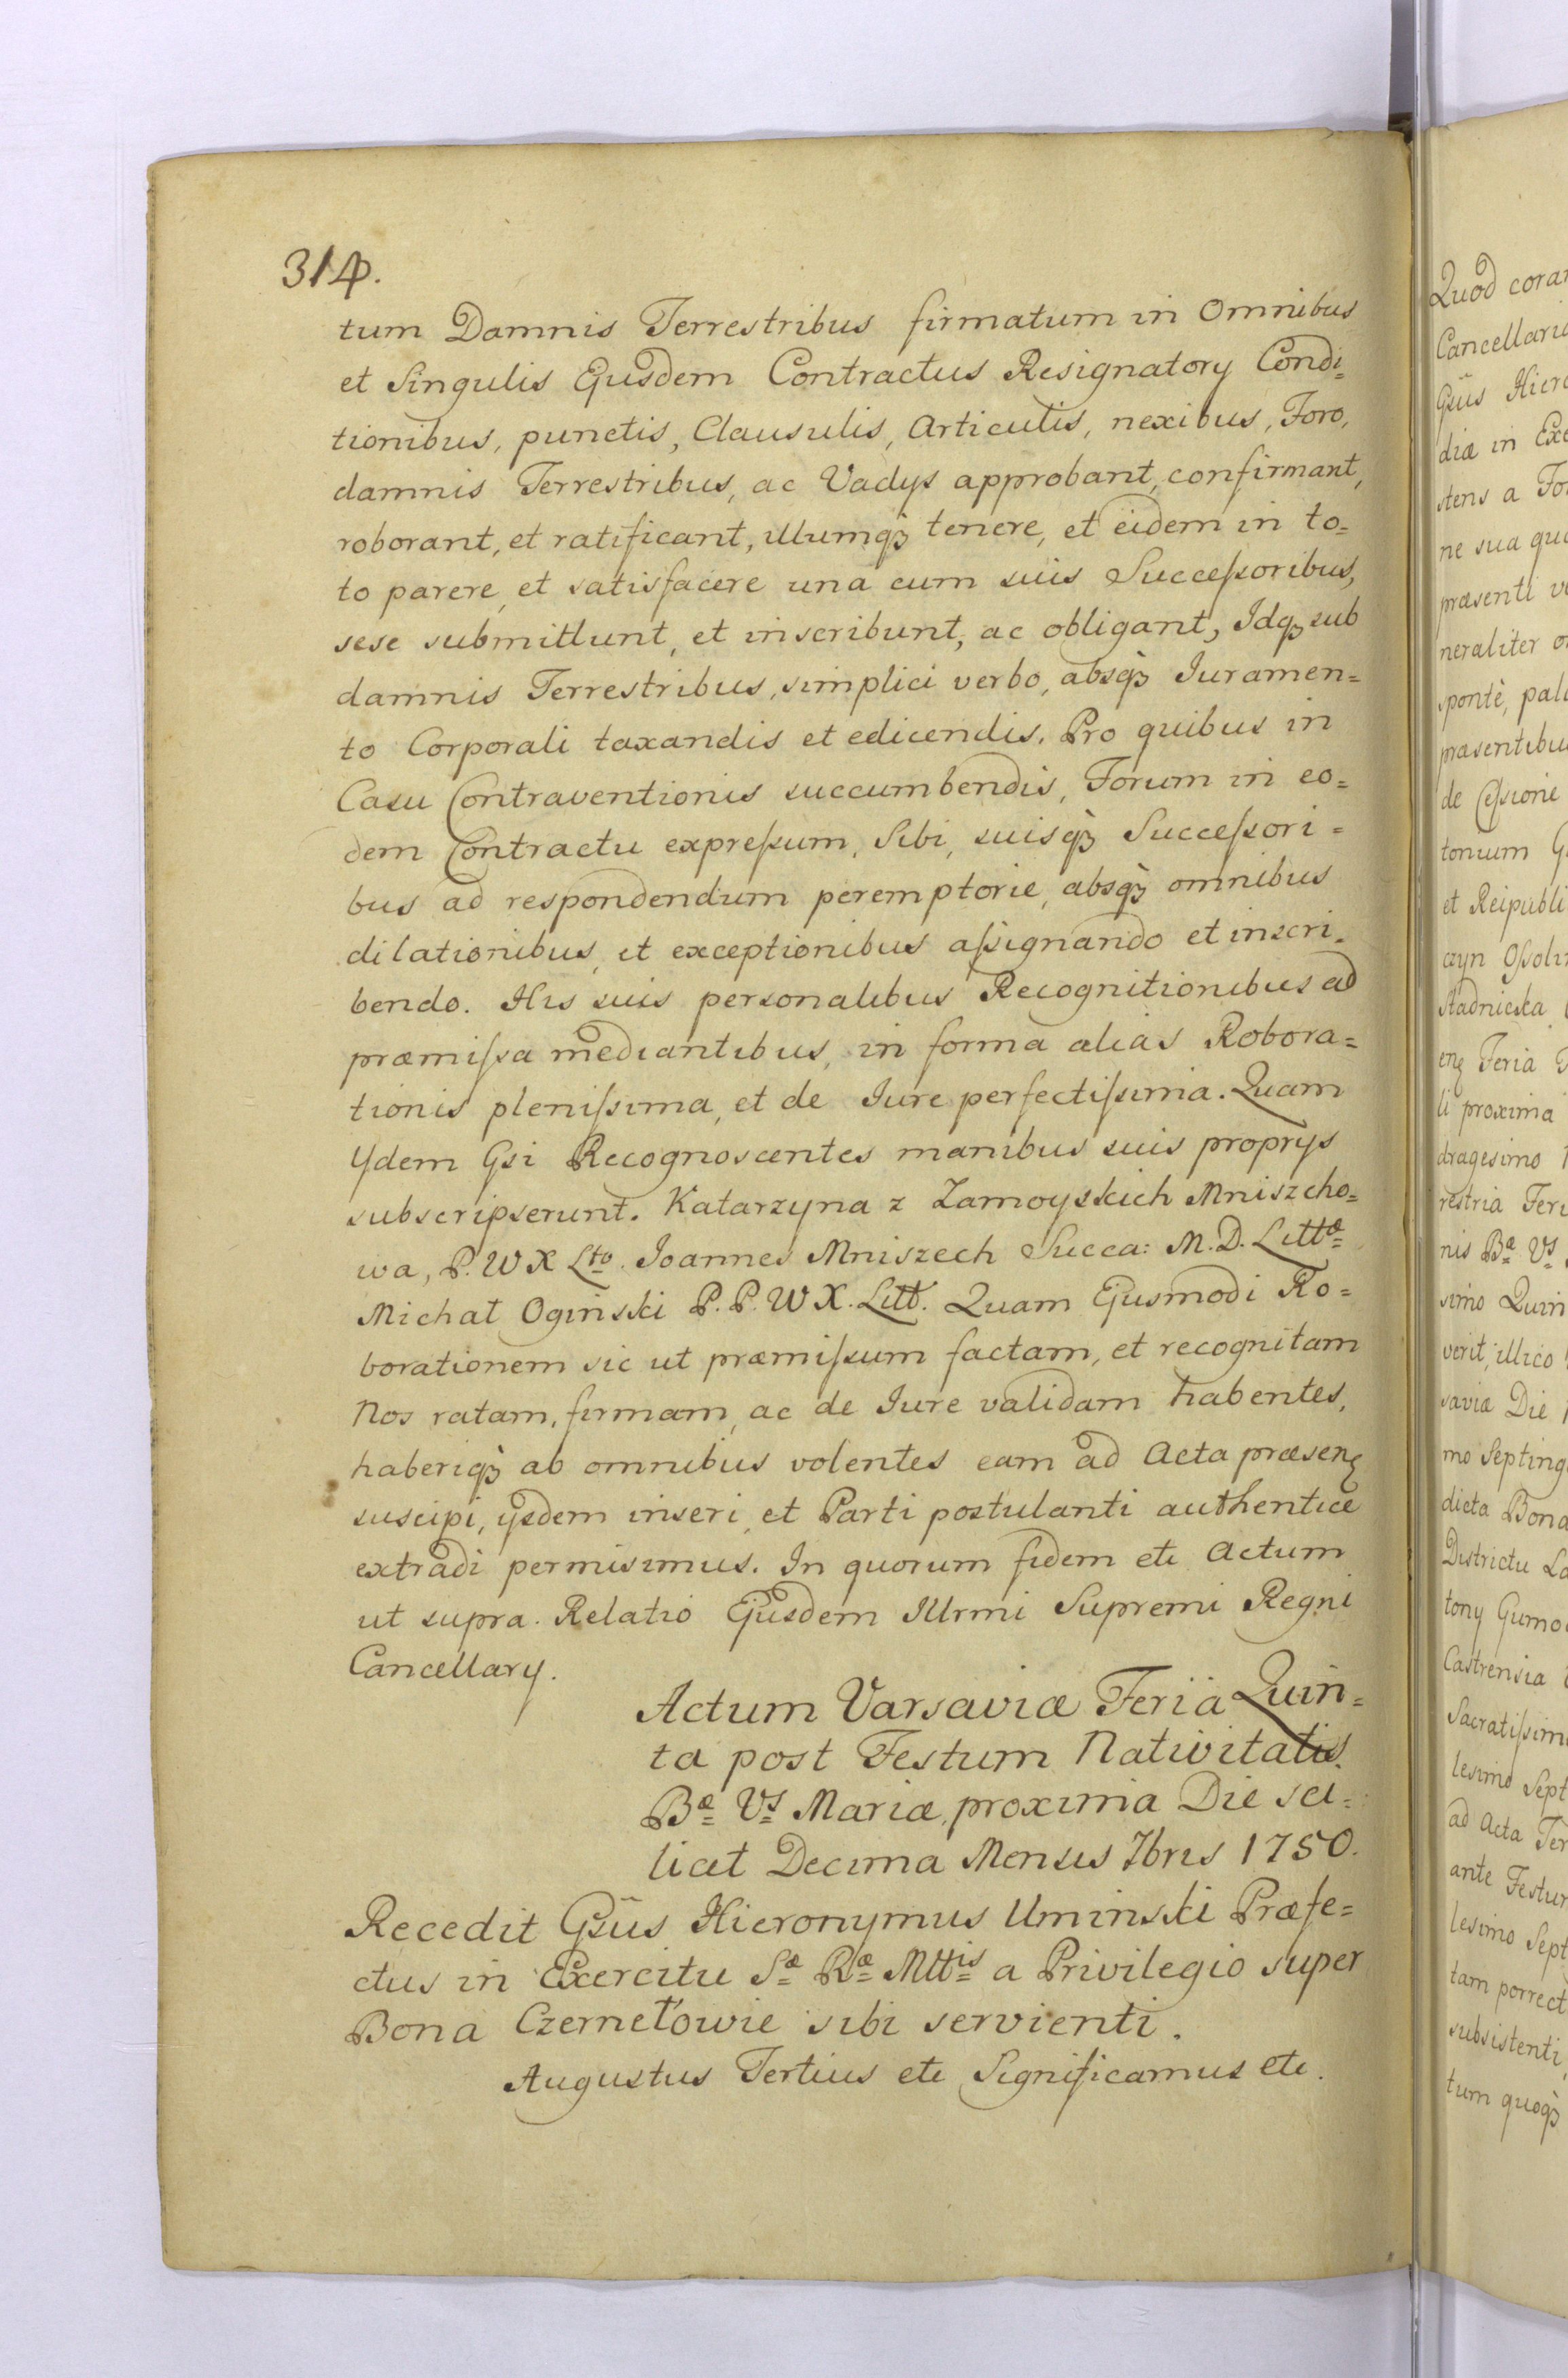 314.
tum Damnis Terrestribus firmatum in Omnibus
et Singulis Ejusdem Contractus Resignatory Condi=
tionibus, punctis, Clausulis, Articulis, nexibus, Foro,
damnis Terrestribus, ac Vadys approbant, confirmant,
roborant, et ratificant, illumqꝫ tenere, et eidem in to=
to parere, et satisfacere una cum suis Succeſsoribus,
sese submittunt, et inscribunt, ac obligant, Idqꝫ sub
damnis Terrestribus, simplici verbo, absqꝫ Iuramen=
to Corporali taxandis et edicendis. Pro quibus in
Casu Contraventionis succumbendis, Forum in eo=
dem Contractu expreſsum, Sibi, suisqꝫ Succeſsori=
bus ad respondendum peremptorie, absqꝫ omnibus
dilationibus, et exceptionibus aſsignando et inscri=
bendo. His suis personalibus Recognitionibus ad
præmiſsa mediantibus, in forma alias Robora=
tionis pleniſsima, et de Iure perfectiſsima. Quam
Ydem Gsi Recognoscentes manibus suis proprys
subscripserunt. Katarzyna z Zamoyskich Mniszcho=
wa, P. W X Lto. Joannes Mniszech Succa: M. D. Littæ
Michał Oginski P. P. W X. Litt. Quam Ejusmodi Ro=
borationem sic ut præmiſsum factam, et recognitam
Nos ratam, firmam, ac de Iure validam habentes,
haberiqꝫ ab omnibus volentes eam ad Acta præsenꝫ
suscipi, ysdem inseri, et Parti postulanti authentice
extradi permisimus. In quorum fidem etc Actum
ut supra. Relatio Ejusdem Illrmi Supremi Regni
Cancellary.
Actum Varsaviæ Feria Quin=
ta post Festum Nativitatis
Bæ Vs Mariæ, proxima Die sci=
licet Decima Mensis 7bris 1750.
Recedit Gsus Hieronymus Uminski Præfe=
ctus in Exercitu Sæ Ræ Mttis a Privilegio super
Bona Czernełowie sibi servienti.
Augustus Tertius etc Significamus etc.
Quod
Cancellari
Gsus Hiero
diæ in Exe
stens a
ne sua
præsenti
neraliter
sponte,
præsentibu
de Ceſsione
tonium
et Reipubli
Stadnicka
Feria
li proxima
dragesimo
restria
nis Bæ Vs
simo Quin
verit, illico
saviæ Die
mo Septing
dicta Bona
Districtu
tony
Castrensia
Sacratiſsim
lesimo Sept
ad Acta Ter
ante Festum
lesimo Sept
tam porrect
subsistenti,
tum quoqꝫ